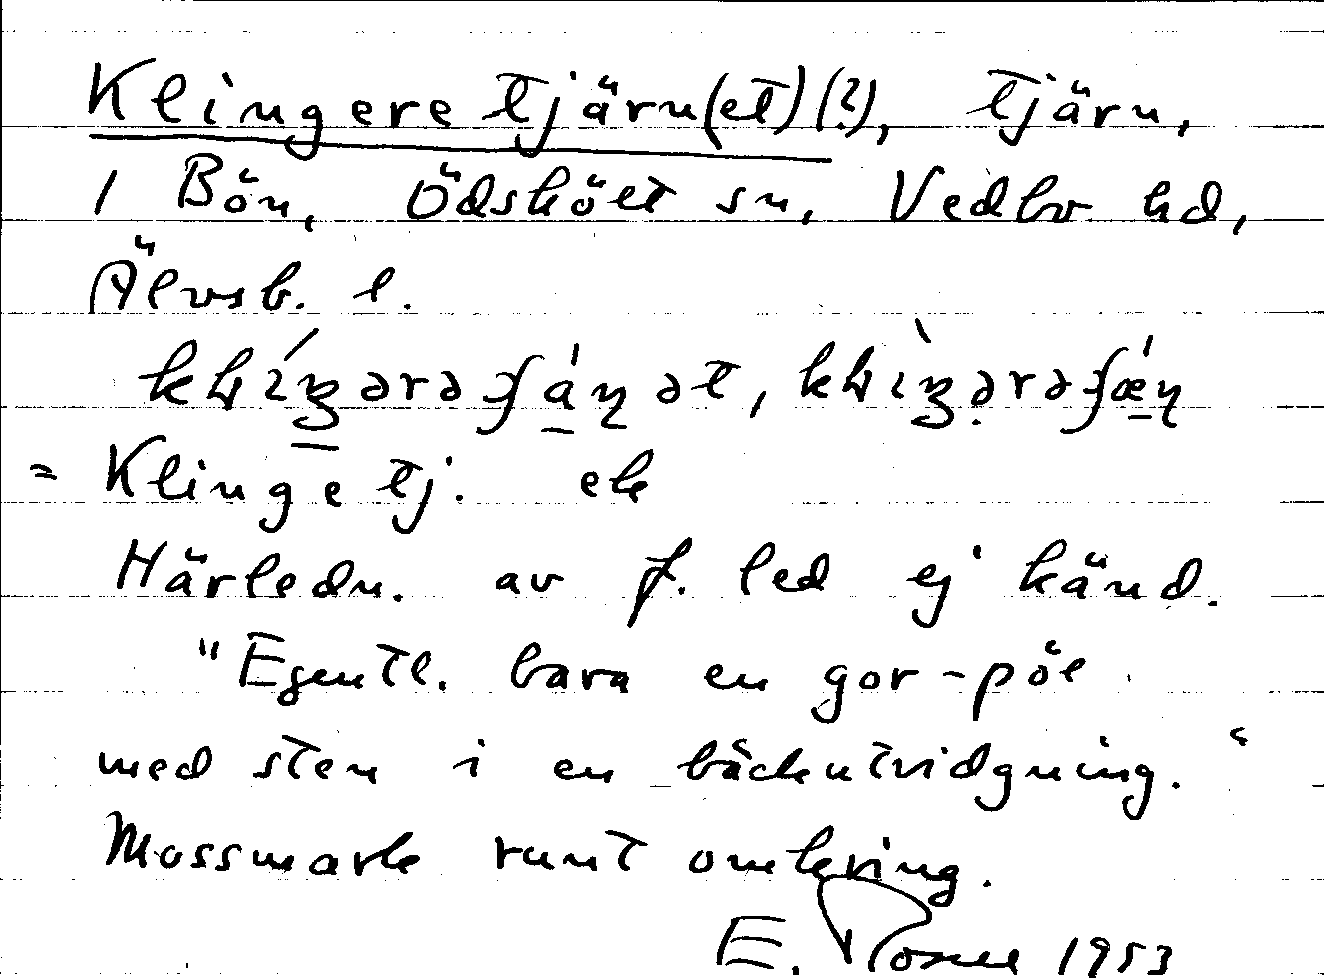 Klingeretjärn(et)(?), tjärn,
i Bön, Ödskölt sn, Vedbo hd,
Älvsb. l.
= Klingetj. ek
Härledn. av f. led ej känd.
"Egentl. bara en gor-pöl
med sten i en bäckutvidgning."
Mossmark runt omkring.
E. 1953